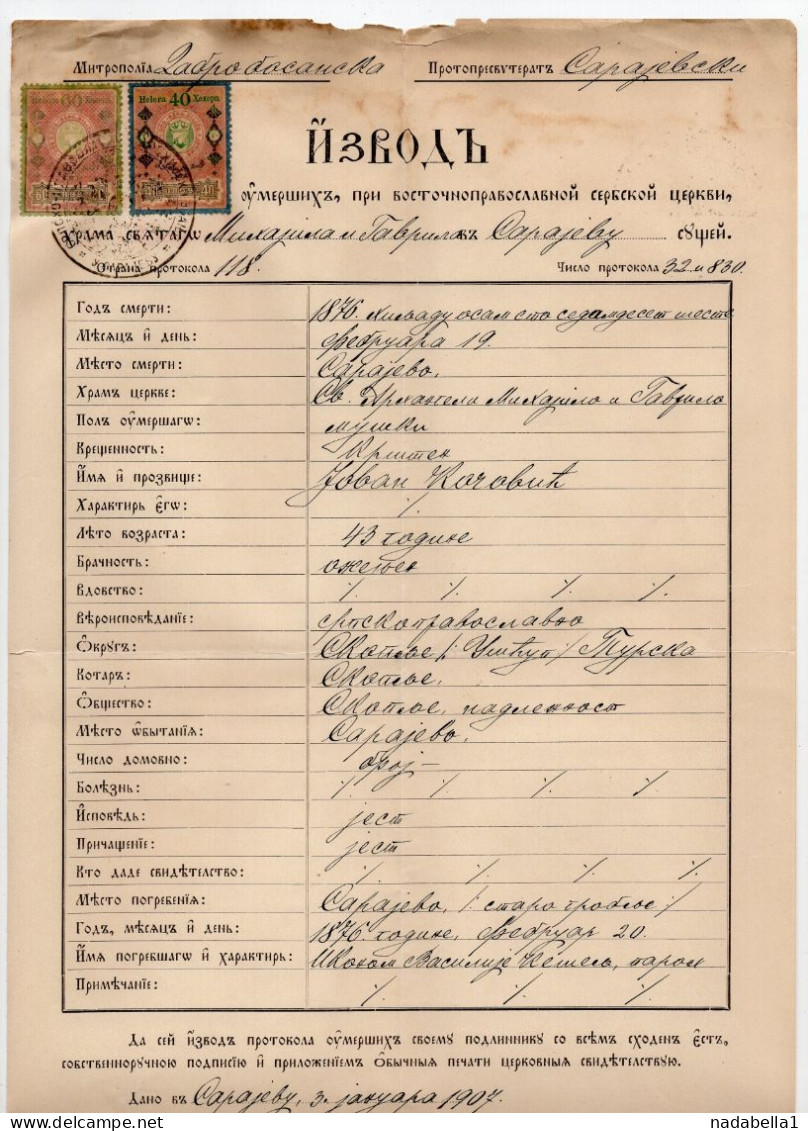 Митрополіѧ Дабробосанска Протопресвутератъ Сарајевски
60 Heлера Хелера
Helera 40 Хелера
Йзводъ
ᲂумершихъ, при восточноправославной сербской церкви,
храма свѧтагѡ Михајила и Гаврила въ Сарајеву сущей.
Страна протокола 118. Число протокола 32 и 830.
Годъ смерти: 1876. хиљаду осам сто седамдесет шесте
Мѣсѧцъ й день: Фебруара 19.
Мѣсто смерти: Сарајево,
Храмъ церкве: Св. Архангели Михајило и Гаврило
Полъ ᲂумершагѡ: мушки
Крещенность: Крштен
Ймѧ й прозвище: Јован Кочовић
Характиръ єгѡ: ·/.
Лѣто возраста: 43 године
Брачность: ожењен
Вдовство: ·/. ·/. ·/. ·/.
Вѣроисповѣданіе: српскоправославно
Ѻкругъ: Скопље /: Ушћуп :/ Турска
Котаръ: Скопље,
Ѻбщество: Скопље, надлежност
Мѣсто ѡбытаніѧ: Сарајево,
Число домовно: број —
Болѣзнь: ·/. ·/. ·/. ·/.
Йсповѣдь: јест
Причащеніе: јест
Кто даде свидѣтелство: ·/. ·/. ·/. ·/.
Мѣсто погребеніѧ: Сарајево, /: старо гробље :/
Годъ, мѣсѧцъ й день: 1876. године, Фебруар 20.
Ймѧ погребшагѡ й характиръ: Иконом Василије парох
Примѣчаніе: ·/. ·/. ·/.
Да сей йзводъ протокола ᲂумершихъ своему подлиннику со всѣмъ сходенъ єсть,
собственноручною подписію й приложеніемъ ѻбычныѧ печати церковныѧ свидѣтелствую.
Дано въ Сарајеву, 3. јануара 1907.
nadabella1